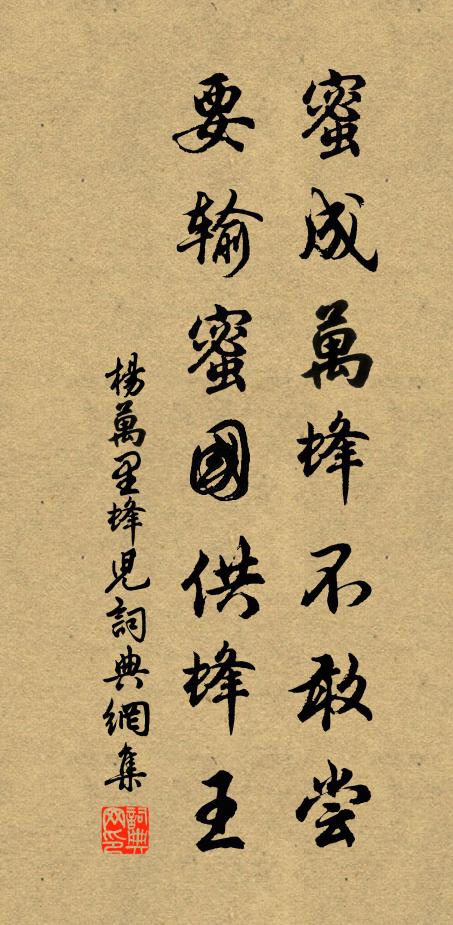 蜜成萬蜂不敢尝
要输蜜國供蜂王
楊萬里蜂児詞典網集
詞典网印